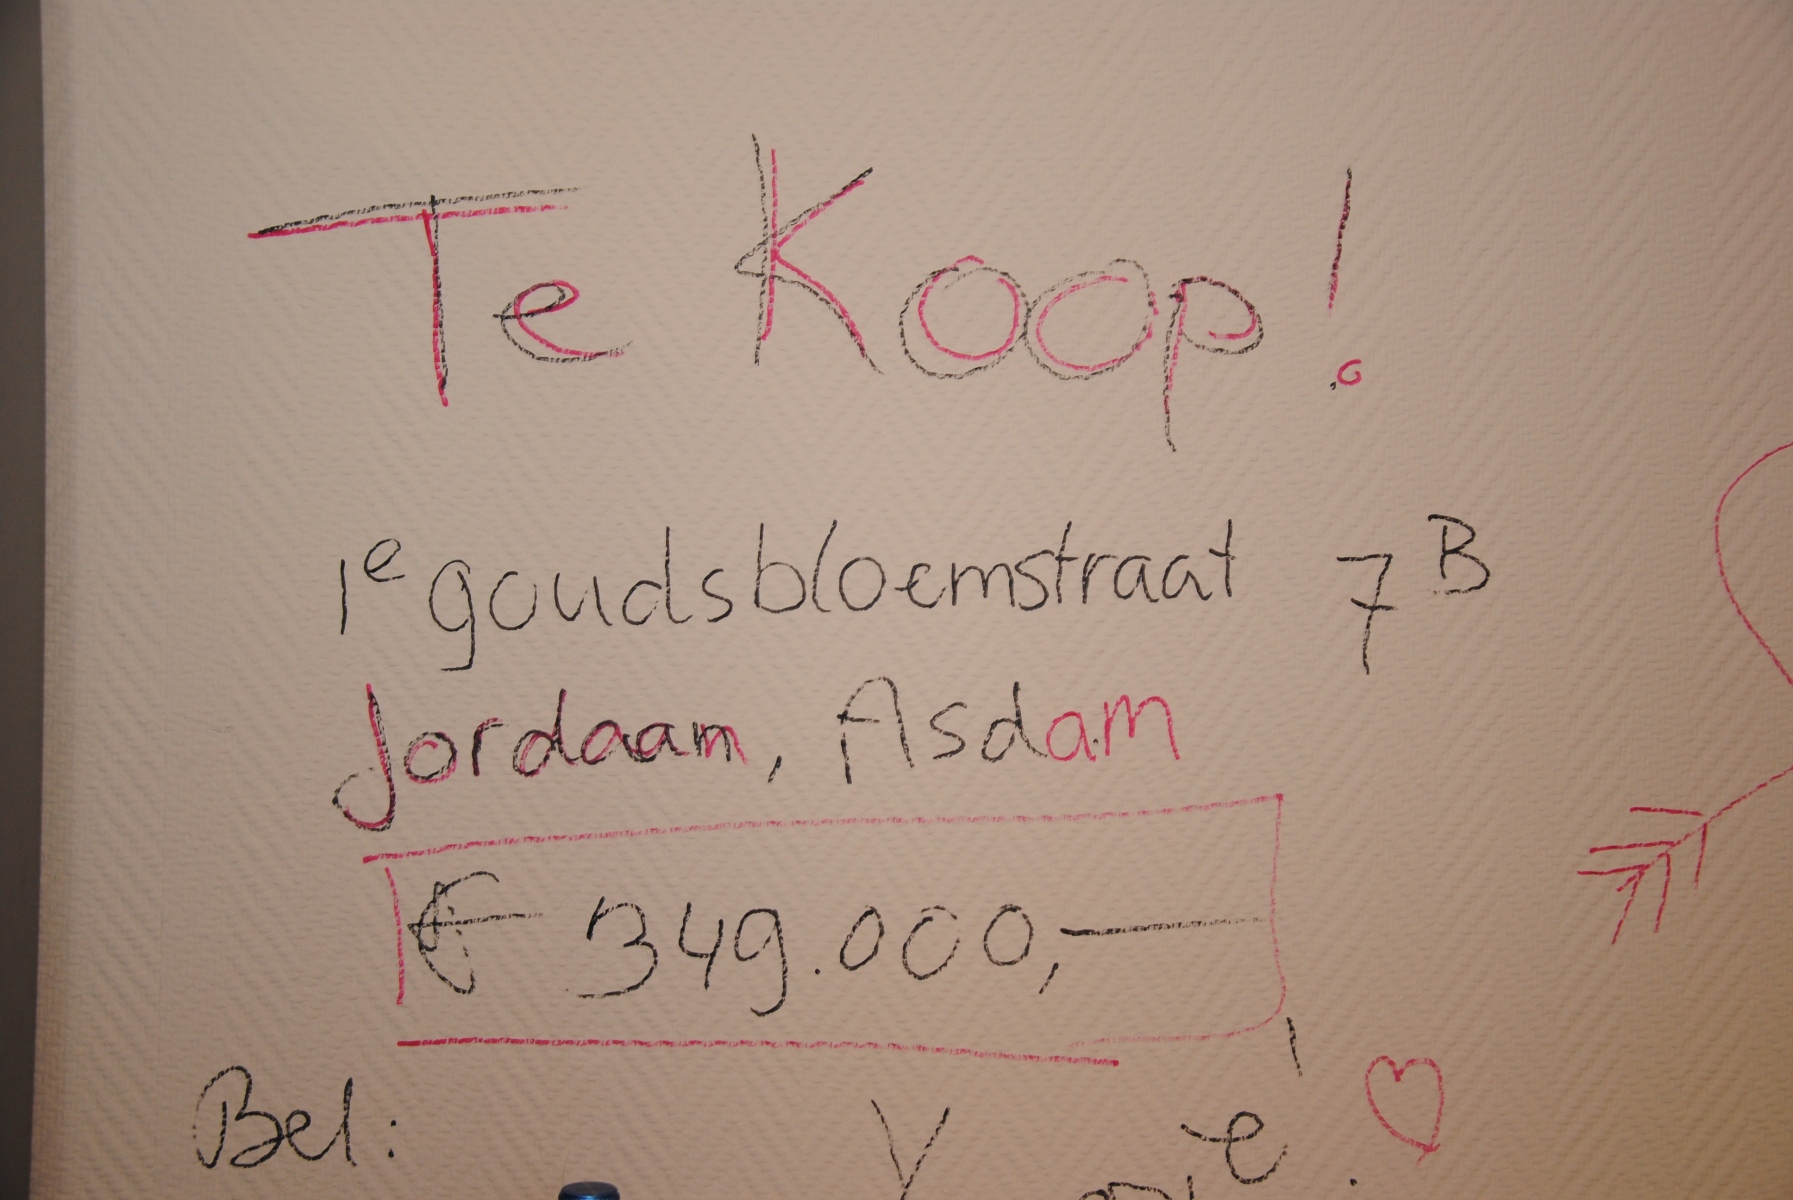 Te Koop!
1e goudsbloemstraat 7B
Jordaan, Asdam
€ 349.000,-
Bel: